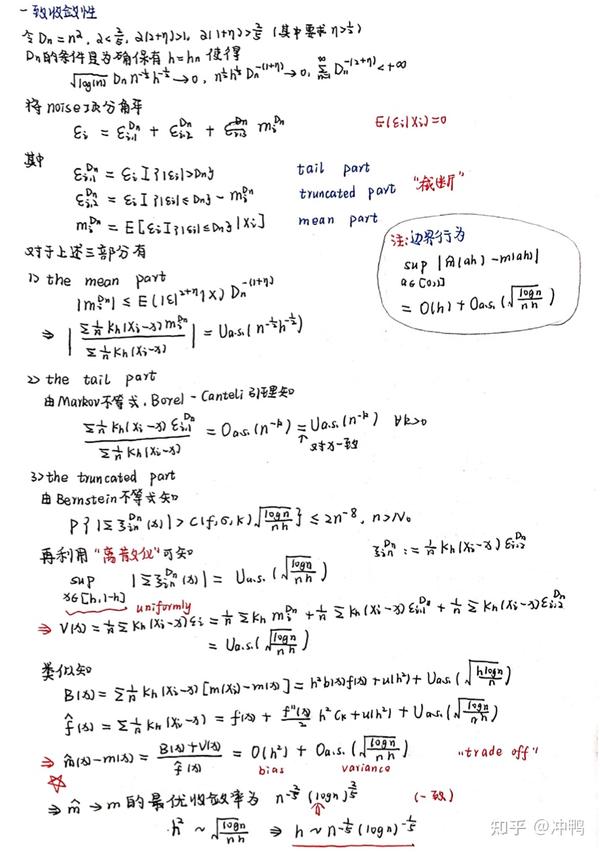 一致收敛性
令 Dn = n^α, α < 2/5, α(2+η) > 1, α(1+η) > 2/5 (其中要求 η > 1/2)
Dn的条件是为确保有 h = hn 使得
√log(n) Dn n^{-1/2} h^{-1/2} → 0, n^{1/2} h^{1/2} Dn^{-(1+η)} → 0, Σ_{n=1}^∞ Dn^{-(2+η)} < +∞
将 noise 项分解成
εi = ε_{i,1}^{Dn} + ε_{i,2}^{Dn} + m_i^{Dn}
E(εi|Xi)=0
其中
ε_{i,1}^{Dn} = εi I{|εi|>Dn}
tail part
ε_{i,2}^{Dn} = εi I{|εi|≤Dn} - m_i^{Dn}
truncated part "截断"
m_i^{Dn} = E[εi I{|εi|≤Dn}|Xi]
mean part
对于上述三部分有
注:边界行为
sup_{a∈[0,1]} |m̂(ah) - m(ah)|
= O(h) + Oa.s.(√(logn/nh))
1) the mean part
|m_i^{Dn}| ≤ E(|ε|^{2+η}|X) Dn^{-(1+η)}
⇒ |Σ 1/n Kh(Xi-x) m_i^{Dn} / Σ 1/n Kh(Xi-x)| = Ua.s.(n^{-1/2} h^{-1/2})
2) the tail part
由Markov不等式, Borel-Cantelli 引理知
Σ 1/n Kh(Xi-x) ε_{i,1}^{Dn} / Σ 1/n Kh(Xi-x) = Oa.s.(n^{-k}) = Ua.s.(n^{-k}) ∀k>0
对x一致
3) the truncated part
由Bernstein不等式知
P{|Σ ξ_{in}^{Dn}(x)| > C(f,σ,K) √(logn/nh)} ≤ 2n^{-8}, n>N0
再利用"离散化"可知
ξ_{in}^{Dn} := 1/n Kh(Xi-x) ε_{i,2}^{Dn}
sup_{x∈[h,1-h]} |Σ ξ_{in}^{Dn}(x)| = Ua.s.(√(logn/nh))
uniformly
⇒ V(x) = 1/n Σ Kh(Xi-x) εi = 1/n Σ Kh m_i^{Dn} + 1/n Σ Kh(Xi-x) ε_{i,1}^{Dn} + 1/n Σ Kh(Xi-x) ε_{i,2}^{Dn}
= Ua.s.(√(logn/nh))
类似知
B(x) = Σ 1/n Kh(Xi-x) [m(Xi)-m(x)] = h² b(x) f(x) + u(h²) + Ua.s.(√(hlogn/n))
f̂(x) = Σ 1/n Kh(Xi-x) = f(x) + f''(x)/2 h² CK + u(h²) + Ua.s.(√(logn/nh))
⇒ m̂(x) - m(x) = (B(x)+V(x))/f̂(x) = O(h²) + Oa.s.(√(logn/nh)) "trade off"
bias variance
⇒ m̂ → m 的最优收敛率为 n^{-2/5} (logn)^{2/5} (一致)
h² ~ √(logn/nh) ⇒ h ~ n^{-1/5} (logn)^{-1/5}
知乎 @冲鸭